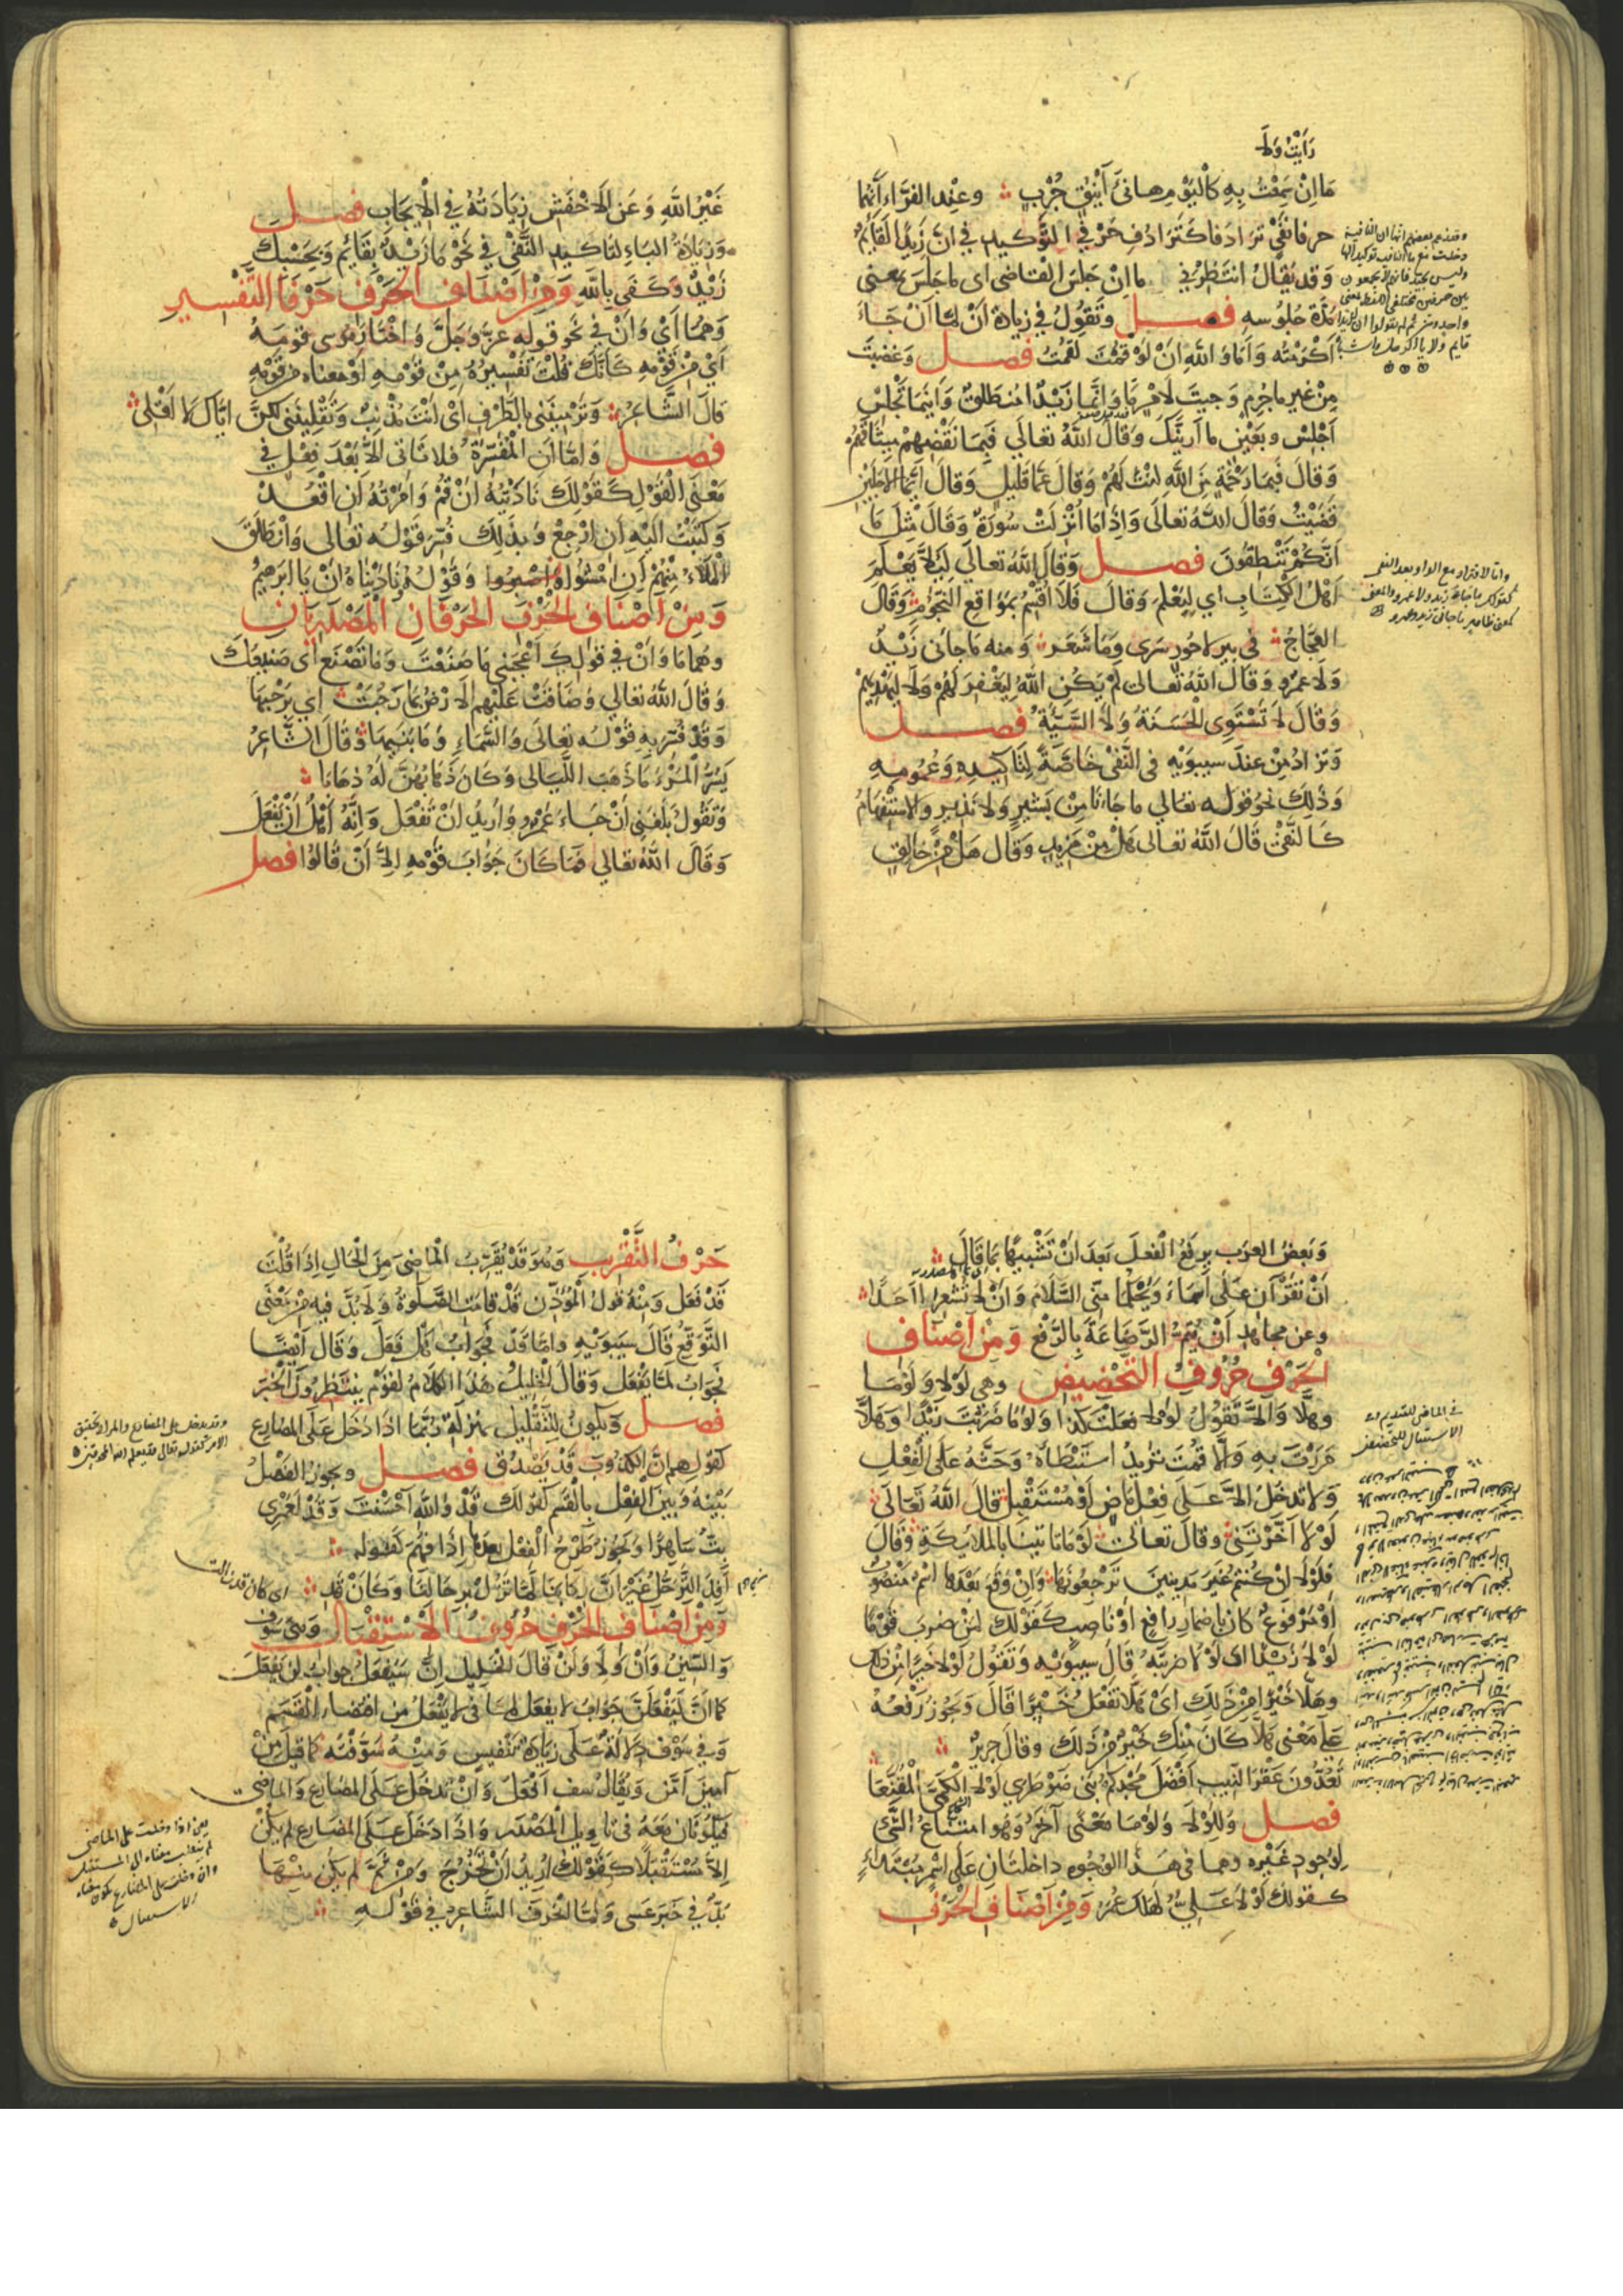 رَأَيْتُ وَلَا
مَا اِنْ سَمِعْتُ بِهِ كَالْيَوْمِ هَانِئَ أَيْنُقٍ جُرْبِ وعِنْدَ الفَرَّاءِ أَنَّهُمَا
حرفا نفْيٍ ترادفا كَتَرَادُفِ حَرْفَيِ التَّوكيدِ في انَّ زَيْدًا لَقَائمٌ
وَقد يُقالُ انتَظِرْنِي ما اِنْ جَلَسَ القَاضى اى ما جَلَسَ بمعنى
مُدَّةَ جُلُوسِهِ فصل وتَقُولُ في زيادة اَنْ لمَّا اَنْ جَاءَ
اكْرَمْتُه وَاَمَا وَاللهِ اَنْ لَوْ قُمْتَ لَقُمْتُ فصل وَغضِبْتَ
مِنْ غيرِ ما جُرْمٍ وَجِيتَ لامْرٍ مَا وَاِنَّما زَيْدٌ مُنطَلِقٌ وَاَيْنَمَا تَجْلِسْ
اَجْلِسْ وبعَيْنٍ ما اَرَيَنَّكَ وَقَالَ اللهُ تعَالَى فَبِمَا نَقْضِهِمْ مِيثَاقَهُمْ
وَقَالَ فَبِمَا رَحْمَةٍ مِنَ اللهِ لِنْتَ لَهُمْ وَقَالَ عَمَّا قَلِيلٍ وَقَالَ أَيَّمَا الاَجَلَيْنِ
قَضَيْتُ وَقَالَ اللهُ تعَالَى وَاِذَا مَا أُنْزِلَتْ سُورَةٌ وَقَالَ مِثْلَ مَا
اَنَّكُمْ تَنْطِقُونَ فصل وَقَالَ اللهُ تعَالَى لِئَلَّا يَعْلَمَ
اَهْلُ الْكِتَابِ اي لِيَعْلَمَ وَقَالَ فَلَا اُقْسِمُ بِمَوَاقِعِ النُّجُومِ وَقَالَ
العجَّاجُ في بيرِ لا حُورٍ سَرَى وَمَا شَعَر وَمنه مَا جاءَنى زَيْدٌ
وَلَا عمْرو وَقَالَ اللهُ تعَالى لَمْ يَكُنِ اللهُ لِيَغْفِرَ لَهُمْ وَلَا لِيَهْدِيَهُمْ
وَقَالَ لَا تَسْتَوِى الْحَسَنَةُ وَلَا السَّيِّئَةُ فصل
وَتزادُ مِنْ عندَ سيبَوَيْهِ فى النَّفْىِ خَاصَّةً لتَاكيدِهِ وَعُمُومِهِ
وَذلِكَ نحوُ قولِه تعَالى ما جَاءَنَا مِنْ بَشِيرٍ وَلَا نَذِيرٍ والاسْتِفْهَامُ
كَالنَّفْىِ قَالَ اللهُ تعَالى هَلْ مِنْ مَزِيدٍ وَقَالَ هَلْ مِنْ خَالِقٍ
واما لا فتزاد مع الواو بعد النفى
غَيْرُ اللهِ وَعَنِ الاَخْفَشِ زِيَادَتُهُ فِي الْاِيجَابِ فصل
وَزيَادَةُ البَاءِ لتَاكيدِ النَّفْيِ في نَحْوِ مَا زَيْدٌ بِقَائِمٍ وَبِحَسْبِكَ
زَيْدٌ وَكَفَى بِاللَّهِ وَمِنْ اصْنَافِ الحَرْفِ حَرْفَا التَّفْسِيرِ
وَهُمَا أَيْ وَاَنْ في نَحْوِ قولِهِ عزَّ وَجَلَّ وَاخْتَارَ مُوسى قَومَهُ
اَيْ مِنْ قَوْمِهِ كَأَنَّكَ قُلْتَ تَفْسِيرُهُ مِنْ قَوْمِهِ اَوْ مَعنَاه مِنْ قَوْمِهِ
قَالَ الشَّاعِرُ وَتَرْمِينَنِي بِالطَّرْفِ اَىْ اَنْتَ مُذْنِبٌ وَتَقْلِينَنِى لكِنَّ ايَّاكِ لَا اَقْلِى
فصل وَامَّا اَنِ الْمُفَسِّرَةُ فَلَا تَاتى اِلَّا بَعْدَ فِعْلٍ فِي
مَعْنَى الْقَوْلِ كَقَوْلِكَ نَادَيْتُهُ اَنْ قُمْ وَاَمَرْتُهُ اَنِ اقْعُدْ
وَكَتَبْتُ اِلَيْهِ اَنِ ارْجِعْ وَبذَلِكَ فُسِّرَ قَوْلُه تعَالى وَانْطَلَقَ
الْمَلَأُ مِنْهُمْ اَنِ امْشُوا وَاصْبِرُوا وَقَوْلُهُ وَنَادَيْنَاهُ اَنْ يَا ابْرَاهِيمُ
وَمِنْ اَصْنَافِ الْحَرْفِ الحَرْفَانِ الْمَصْدَرِيَّانِ
وهُمَا مَا وَاَنْ في قولِكَ اَعْجَبَنى مَا صَنَعْتَ وَمَا تَصْنَعُ اَى صَنِيعُكَ
وَقَالَ اللهُ تعَالي وَضَاقَتْ عَلَيْهِمُ الاَرْضُ بِمَا رَحُبَتْ اي بِرُحْبِهَا
وَقَدْ فُسِّرَ بِهِ قَوْلُهُ تعَالَى وَالسَّمَاءِ وَمَا بَنَيهَا وَقَالَ الشَّاعِرُ
يَسُرُّ الْمَرْءَ مَا ذَهَبَ اللَّيَالِى وَكَانَ ذَهَابُهُنَّ لَهُ ذَهَابَا
وَتَقُولُ بَلَغَنِى اَنْ جَاءَ عَمْرٌو وَاُرِيدُ اَنْ تَفْعَلَ وَاِنَّهُ اَهْلٌ اَنْ يَفْعَلَ
وَقَالَ اللهُ تعَالي فَمَا كَانَ جَوَابَ قَوْمِهِ اِلَّا اَنْ قَالُوا فصل
وَبَعضُ العَرَبِ يرفَعُ الفِعلَ بَعدَ اَنْ تَشْبِيهًا بِمَا قَالَ
اَنْ تَقْرَآنِ عَلَى اَسْمَاءَ وَيْحَكُمَا مِنِّى السَّلَامَ وَاَنْ لَا تُشْعِرَا اَحَدًا
وعن مجاهدٍ اَنْ يُتِمُّ الرَّضَاعَةَ بِالرَّفْعِ وَمِنْ اَصْنَافِ
الْحَرْفِ حُرُوفُ التَّحْضِيضِ وهى لَوْلَا وَلَوْمَا
وهَلَّا وَاَلَّا تَقُولُ لَوْلَا فعلتَ كَذَا وَلَوْمَا ضَرَبْتَ زَيْدًا وَهَلَّا
مَرَرْتَ بِهِ وَاَلَّا قُمْتَ تُرِيدُ اسْتِبْطَاءَهُ وَحَثَّهُ عَلَى الْفِعْلِ
وَلَا تدخُلُ اِلَّا عَلَى فِعْلٍ مَاضٍ اَوْ مُسْتَقْبِلٍ قَالَ اللهُ تَعَالَى
لَوْلَا اَخَّرْتَنِى وَقَالَ تعَالَى لَوْمَا تَاتِينَا بِالْمَلَائِكَةِ وَقَالَ
فَلَوْلَا اِنْ كُنْتُمْ غَيْرَ مَدِينِينَ تَرْجِعُونَهَا وَاِنْ وَقَعَ بَعْدَهَا اسْمٌ مَنْصُوبٌ
اَوْ مَرْفُوعٌ كَانَ بِاضمَارِ رَافِعٍ اَوْ نَاصِبٍ كَقَوْلِكَ لِمَنْ ضَرَبَ قَوْمًا
لَوْلَا زَيْدًا اى لَوْلَا ضَرَبْتَهُ قَالَ سِيبَوَيْهِ وَتَقُولُ لَوْلَا خَيْرًا مِنْ ذلك
وهَلَّا خَيْرًا مِنْ ذَلِكَ اَىْ هَلَّا تفْعَلُ خَيْرًا قَالَ وَيَجُوزُ رَفْعُهُ
عَلَى مَعْنَى هَلَّا كَانَ مِنْكَ خَيْرٌ مِنْ ذَلكَ وقَالَ جريرٌ
تَعُدُّونَ عَقْرَ النِّيبِ اَفْضَلَ مَجْدِكُمْ بَنِى ضَوْطَرَي لَوْلَا الْكَمِىَّ الْمُقَنَّعَا
فصل وَلِلَوْلَا وَلَوْمَا مَعْنًى آخَرُ وَهُوَ امْتِنَاعُ الشَّىْءِ
لِوُجودِ غَيْرِهِ وهما في هَذَا الوَجْهِ دَاخِلَتَانِ عَلَى اسْمٍ مُبْتَدَاءٍ
كَقَولكَ لَوْلَا عَلِيٌّ لَهَلَكَ عُمَرُ وَمِنْ اَصْنَافِ الحَرْفِ
في الماضى للتنديم وفى
الاستقبال للتحضيض
حَرْفُ التَّقْرِيبِ وَهُوَ قَدْ يُقَرِّبُ الْمَاضِىَ مِنَ الْحَالِ اِذَا قُلْتَ
قَدْ فَعَلَ وَمِنْهُ قَوْلُ الْمُؤَذِّنِ قَدْ قَامَتِ الصَّلَوةُ وَلَا بُدَّ فِيهِ مِنْ مَعْنَى
التَّوَقُّعِ قَالَ سِيبَوَيْهِ وَاَمَّا قَدْ فَجَوَابُ هَلْ فَعَلَ وَقَالَ اَيْضًا
فَجَوَابُ لَمَّا يَفْعَلْ وَقَالَ الْخَلِيلُ هَذَا الْكَلَامُ لِقَوْمٍ يَنْتَظِرُونَ الْخَبَرَ
فصل وَيَكُونُ لِلتَّقْلِيلِ بِمَنْزِلَةِ رُبَّمَا اذَا دَخَلَ عَلَى المضارع
كقَولِهِم اِنَّ الْكَذُوبَ قَدْ يَصْدُقُ فصل ويجوزُ الفَصْلُ
بَيْنَهُ وَبَيْنَ الْفِعْلِ بِالْقَسَمِ كَقَوْلِكَ قَدْ وَاللهِ اَحْسَنْتَ وَقَدْ لَعَمْرِي
بِتُّ سَاهِرًا وَيَجُوزُ طَرْحُ الْفِعْلِ بعدَهَا اِذَا فُهِمَ كَقَوله
اَفِدَ التَّرَحُّلُ غَيْرَ اَنَّ رِكَابَنَا لَمَّا تَزُلْ بِرِحَالِنَا وَكَاَنْ قَدِ
وَمِنْ اَصْنَافِ الْحَرْفِ حُرُوفُ الْاِسْتِقْبَالِ وَهِىَ سَوْفَ
وَالسِّينُ وَاَنْ وَلَا وَلَنْ قَالَ الْخَلِيلُ اِنَّ سَيَفْعَلُ جوابُ لَنْ يَفْعَلَ
كَمَا اَنَّ لَيَفْعَلَنَّ جَوَابُ لَا يَفْعَلُ لِمَا في لَا يَفْعَلُ مِنِ اقتِضَاءِ الْقَسَمِ
وَفي سَوْفَ دَلَالَةٌ عَلَى زِيَادَةِ تَنْفِيسٍ وَمِنْهُ سَوَّفْتُهُ كَمَا قِيلَ مِنْ
آمِينَ اَمَّنَ وَيُقَالُ سَفْ اَفْعَلُ وَاَنْ تَدْخُلُ عَلَى المضَارِعِ وَالمَاضِى
فَيَكُونَانِ مَعَهُ فى تَاوِيلِ المَصْدَرِ وَاِذَا دَخَلَ عَلَى المُضَارِعِ لَمْ يَكُنْ
اِلَّا مُسْتَقْبَلًا كَقَوْلِكَ اُرِيدُ اَنْ تَخْرُجَ وَمِنْ ثَمَّ لَمْ يَكُنْ مِنْهَا
بُدٌّ فِي خَبَرِ عَسَى وَلَمَّا انْحَرَفَ الشَّاعِرُ في قَوْلِهِ
وقد يدخل على المضارع والمراد تحقيق
الامر كقوله تعالى قد يعلم الله المعوقين
يعنى اذا دخلت على الماضى
لم ينقلب معناه الى المستقبل
وان دخلت على المضارع يكون معناه
الاستقبال